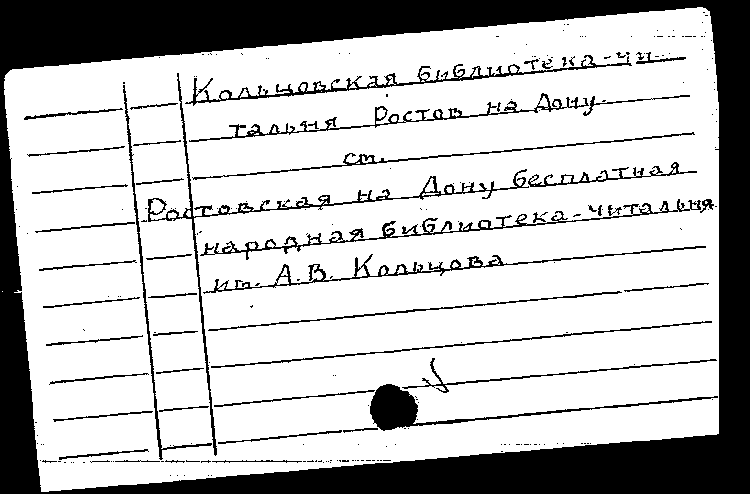 Кольцовская библиотека-чи-
тальня Ростов на Дону.
см.
Ростовская на Дону бесплатная
народная библиотека-читальня
им. А.В. Кольцова